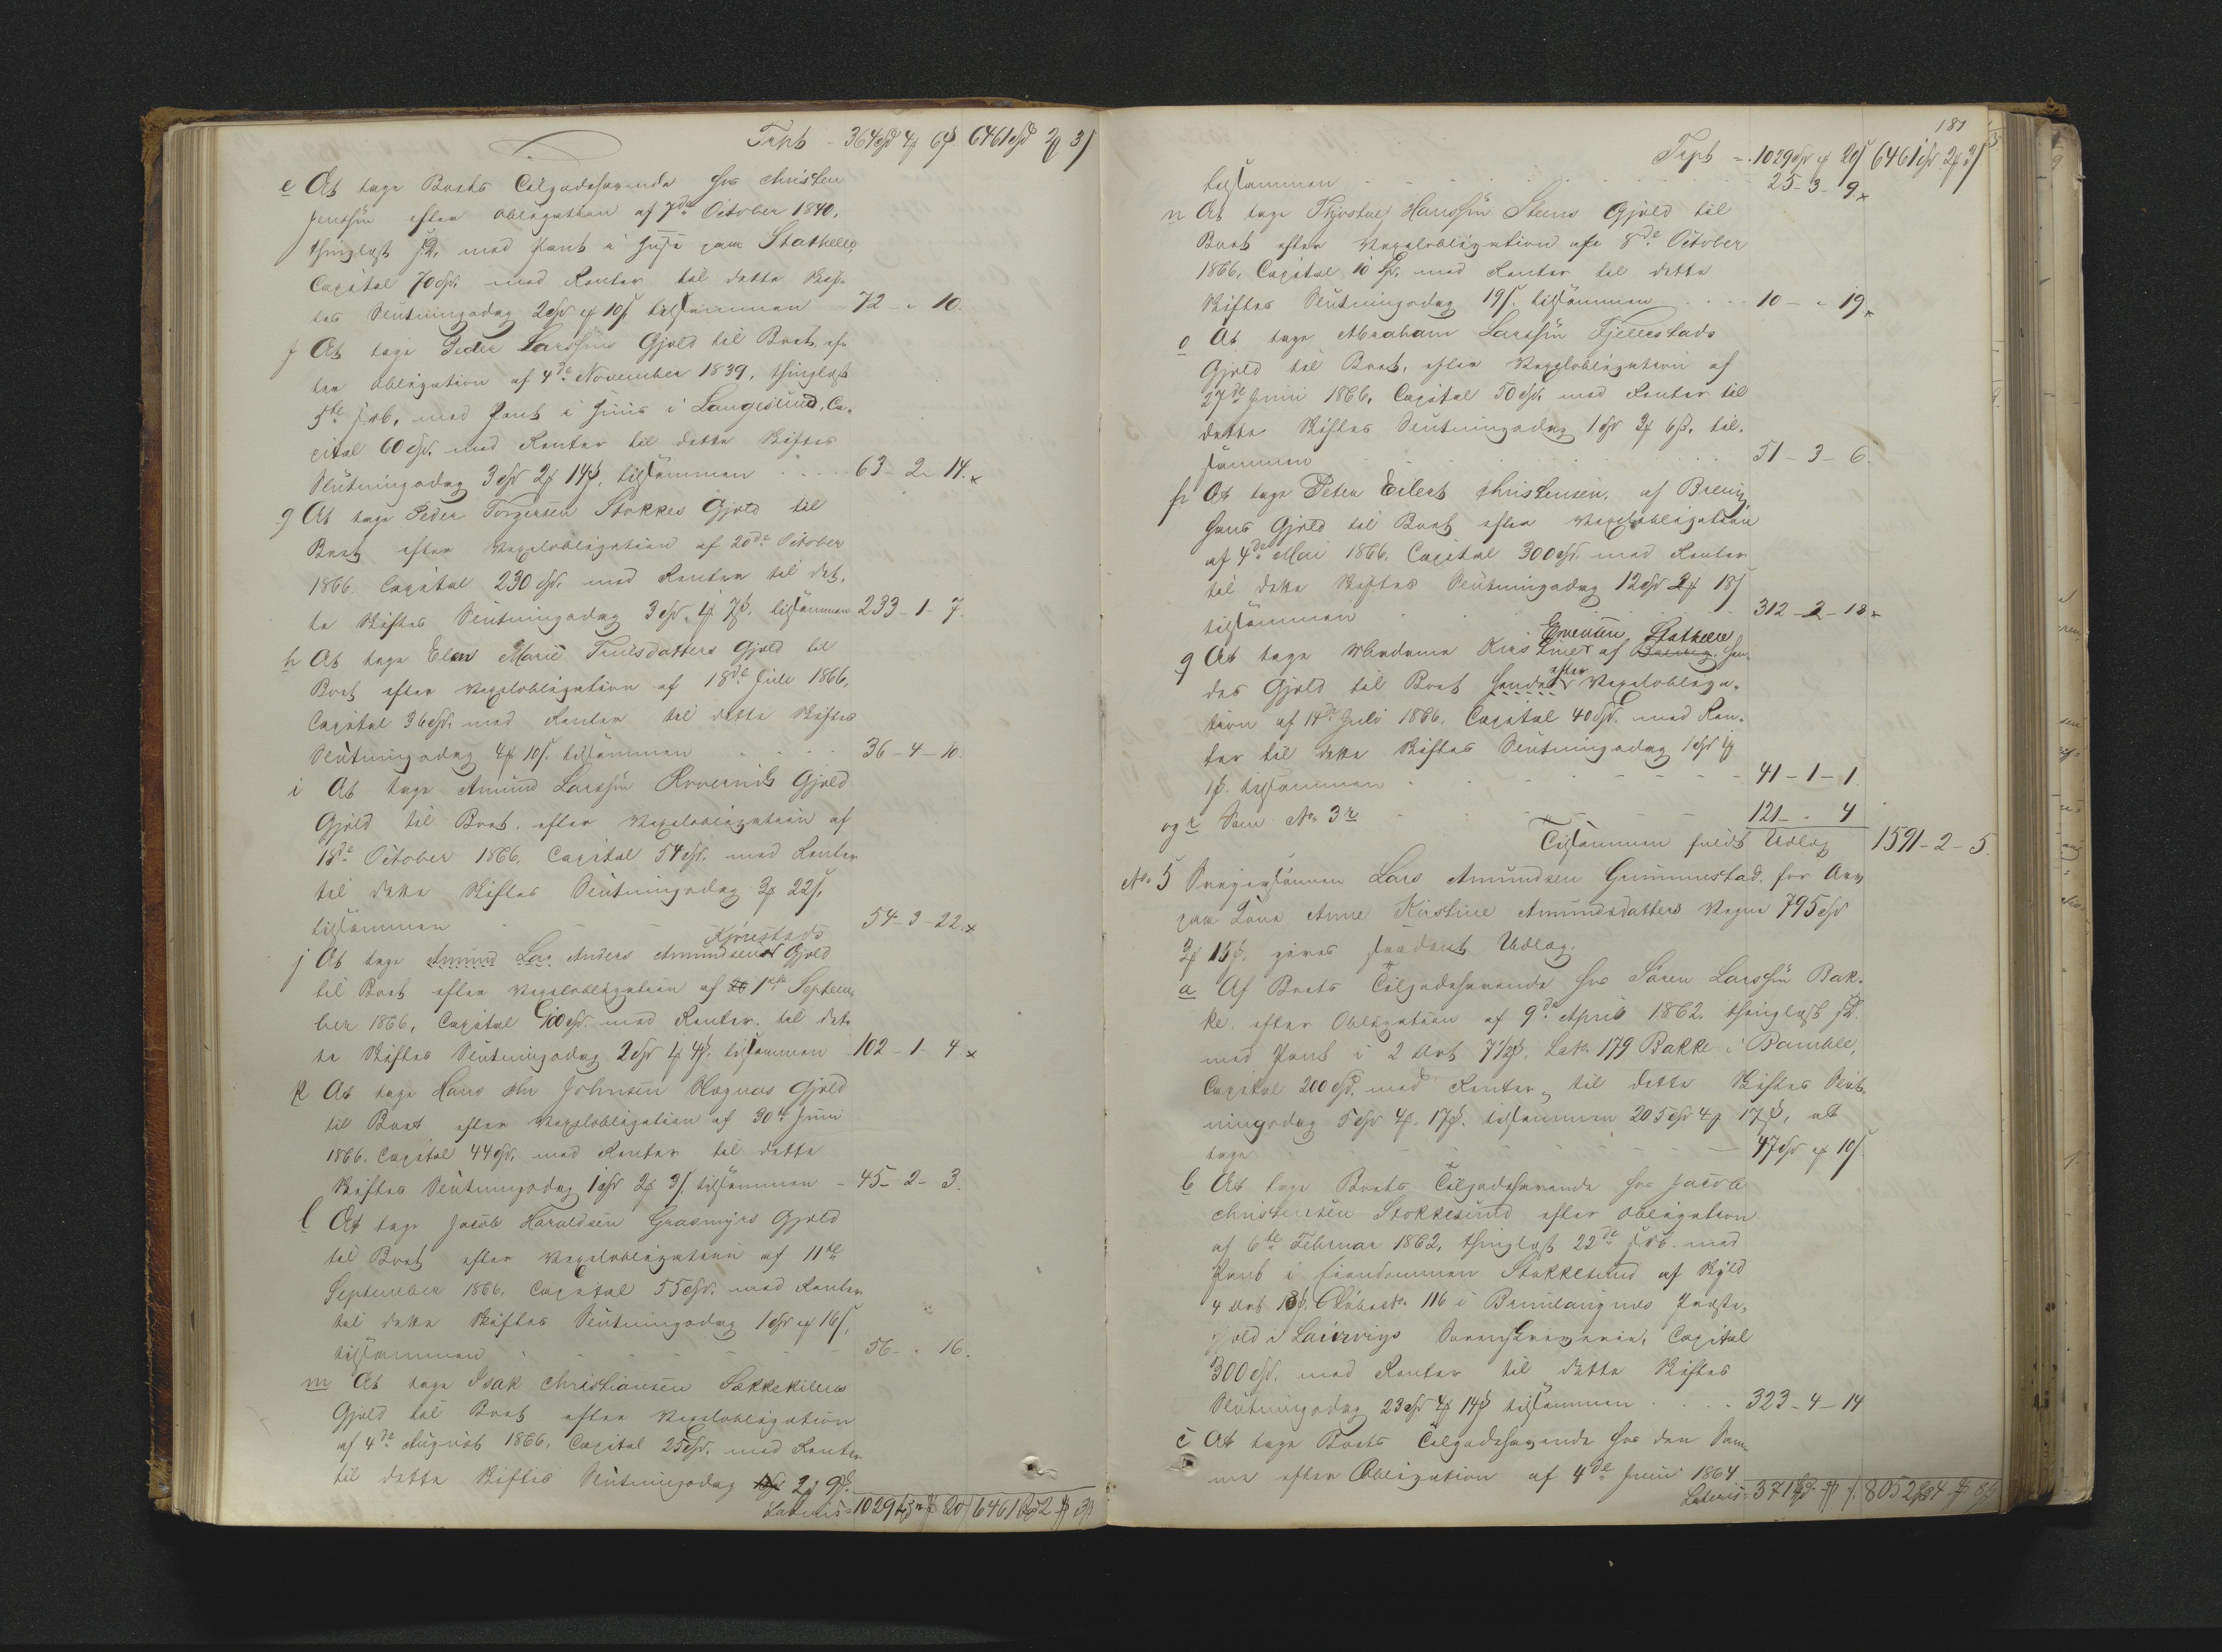 Trpt 364 Spd 4 ₰ 6 ß 6461 Spd 2 ₰ 3 ß
e At tage Boets Tilgodehavende hos Christen
Jenssøn efter Obligation af 7de October 1840,
thinglæst s.D. med Pant i Huse paa Stathelle,
Capital 70 Spd. med Renter til dette Skif-
tes Slutningsdag 2 Spd " 10 ß tilsammen 72 - " 10.
f At tage Peder Larssøns Gjæld til Boet ef-
ter Obligation af 4de November 1839, thinglæst
5te Febr. med Pant i Huus i Langesund, Ca-
pital 60 Spd. med Renter til dette Skiftes
Slutningsdag 3 Spd 2 ₰ 14 ß, tilsammen 63 - 2 - 14. x
g At tage Peder Torgersen Stokkes Gjæld til
Boet efter Vexelobligation af 20de October
1866. Capital 230 Spd. med Renter til det-
te Skiftes Slutningsdag 3 Spd. 1 ₰ 7 ß. tilsammen 233 - 1 - 7.
h At tage Elen Marie Truilsdatters Gjæld til
Boet efter Vexelobligation af 18de Juli 1866,
Capital 36 Spd. med Renter til dette Skiftes
Slutningsdag 4 ₰ 10 ß. tilsammen 36 - 4 - 10.
i At tage Amund Larssøn Gjæld
Gjæld til Boet, efter Vexelobligation af
18de October 1866, Capital 54 Spd. med Renter
til dette Skiftes Slutningsdag 3 ₰ 22 ß.
tilsammen 54 - 3 - 22. x
Kjørestads
j At tage Amund Lar Anders Amundsens Gjæld
til Boet efter Vexelobligation af 1ste Septem-
ber 1866, Capital 100 Spd. med Renter til det-
te Skiftes Slutningsdag 2 Spd 1 ₰ 4 ß. tilsammen 102 - 1 - 4 x
k At tage Hans Johnsen Vægnas Gjæld
til Boet efter Vexelobligation af 30te Juni
1866. Capital 44 Spd. med Renter til dette
Skiftes Slutningsdag 1 Spd 2 ₰ 3 ß, tilsammen - 45 - 2 - 3.
l At tage Jacob Haraldsen Grasmyrs Gjæld
til Boet efter Vexelobligation af 11te
September 1866. Capital 55 Spd. med Renter
til dette Skiftes Slutningsdag 1 Spd " 16 ß.
tilsammen 56 - " 16.
m At tage Isak Christiansen Sækkekilens
Gjæld til Boet efter Vexelobligation
af 4de August 1866, Capital 25 Spd. med Renter
til dette Skiftes Slutningsdag 2 ₰ 9 ß.
Lateris = 1029 Spd " ₰ 20 ß 6461 Spd 2 ₰ 3 ß
181
Trpt = 1029 Spd " 20 ß 6461 Spd 2 ₰ 3 ß
tilsammen 25 - 3 - 9. x
n At tage Thjostul Hanssøn Steens Gjæld til
Boet efter Vexelobligation af 8de October
1866, Capital 10 Spd. med Renter til dette
Skiftes Slutningsdag 19 ß. tilsammen 10 - " 19. x
o At tage Abraham Larssøn Fjellestads
Gjæld til Boet, efter Vexelobligation af
27de Juni 1866, Capital 50 Spd. med Renter til
dette Skiftes Slutningsdag 1 Spd 3 ₰ 6 ß. til-
sammen 51 - 3 - 6.
p At tage Peter Eilert Christensen, af Brevig
hans Gjæld til Boet efter Vexelobligation
af 4de Mai 1866, Capital 300 Spd. med Renter
til dette Skiftes Slutningsdag 12 Spd 2 ₰ 18 ß
tilsammen 312 - 2 - 18. x
Evensen Stathelle
q At tage Madame Kirstine af Brevig hen-
des Gjæld til Boet hendes efter Vexelobliga-
tion af 14de Juli 1866. Capital 40 Spd. med Ren-
ter til dette Skiftes Slutningsdag 1 Spd 1 ₰
1 ß. tilsammen 41 - 1 - 1
og r Som No 3 r 121 - " 4
Tilsammen fuldt Udlæg 1591 - 2 - 5.
No. 5 Lars Amundsen Grummestad. for Arv
paa Kone Anne Kirstine Amundsdatters Vegne 795 Spd
3 ₰ 15 ß, gives saadant Udlæg.
a Af Boets Tilgodehavende hos Søren Larssøn Bak-
ke, efter Obligation af 9de April 1862, thinglæst s.D.
med Pant i 2 Ort 7 1/2 ß, Lno 179 Bakke i Bamble,
Capital 200 Spd. med Renter til dette Skiftes Slut-
ningsdag 5 Spd 4 ₰. 17 ß. tilsammen 205 Spd 4 ₰ 17 ß, at
tage 47 Spd " 10 ß
b At tage Boets Tilgodehavende hos Jacob
Christensen Stokkesund efter Obligation
af 6te Februar 1862, thinglæst 22de Febr. med
Pant i Eiendommen Stokkesund af Skyld
4 Ort 18 ß. Løbeno. 116 i Brunlaugnæs Præste-
gjeld i Laurvigs Sorenskriverie, Capital
300 Spd. med Renter til dette Skiftes
Slutningsdag 23 Spd 4 ₰ 14 ß tilsammen 323 - 4 - 14
c At tage Boets Tilgodehavende hos den Sam-
me efter Obligation af 4de Juni 1864
Lateris = 371 Spd " ₰ " ß. 8052 Spd 4 ₰ 8 ß